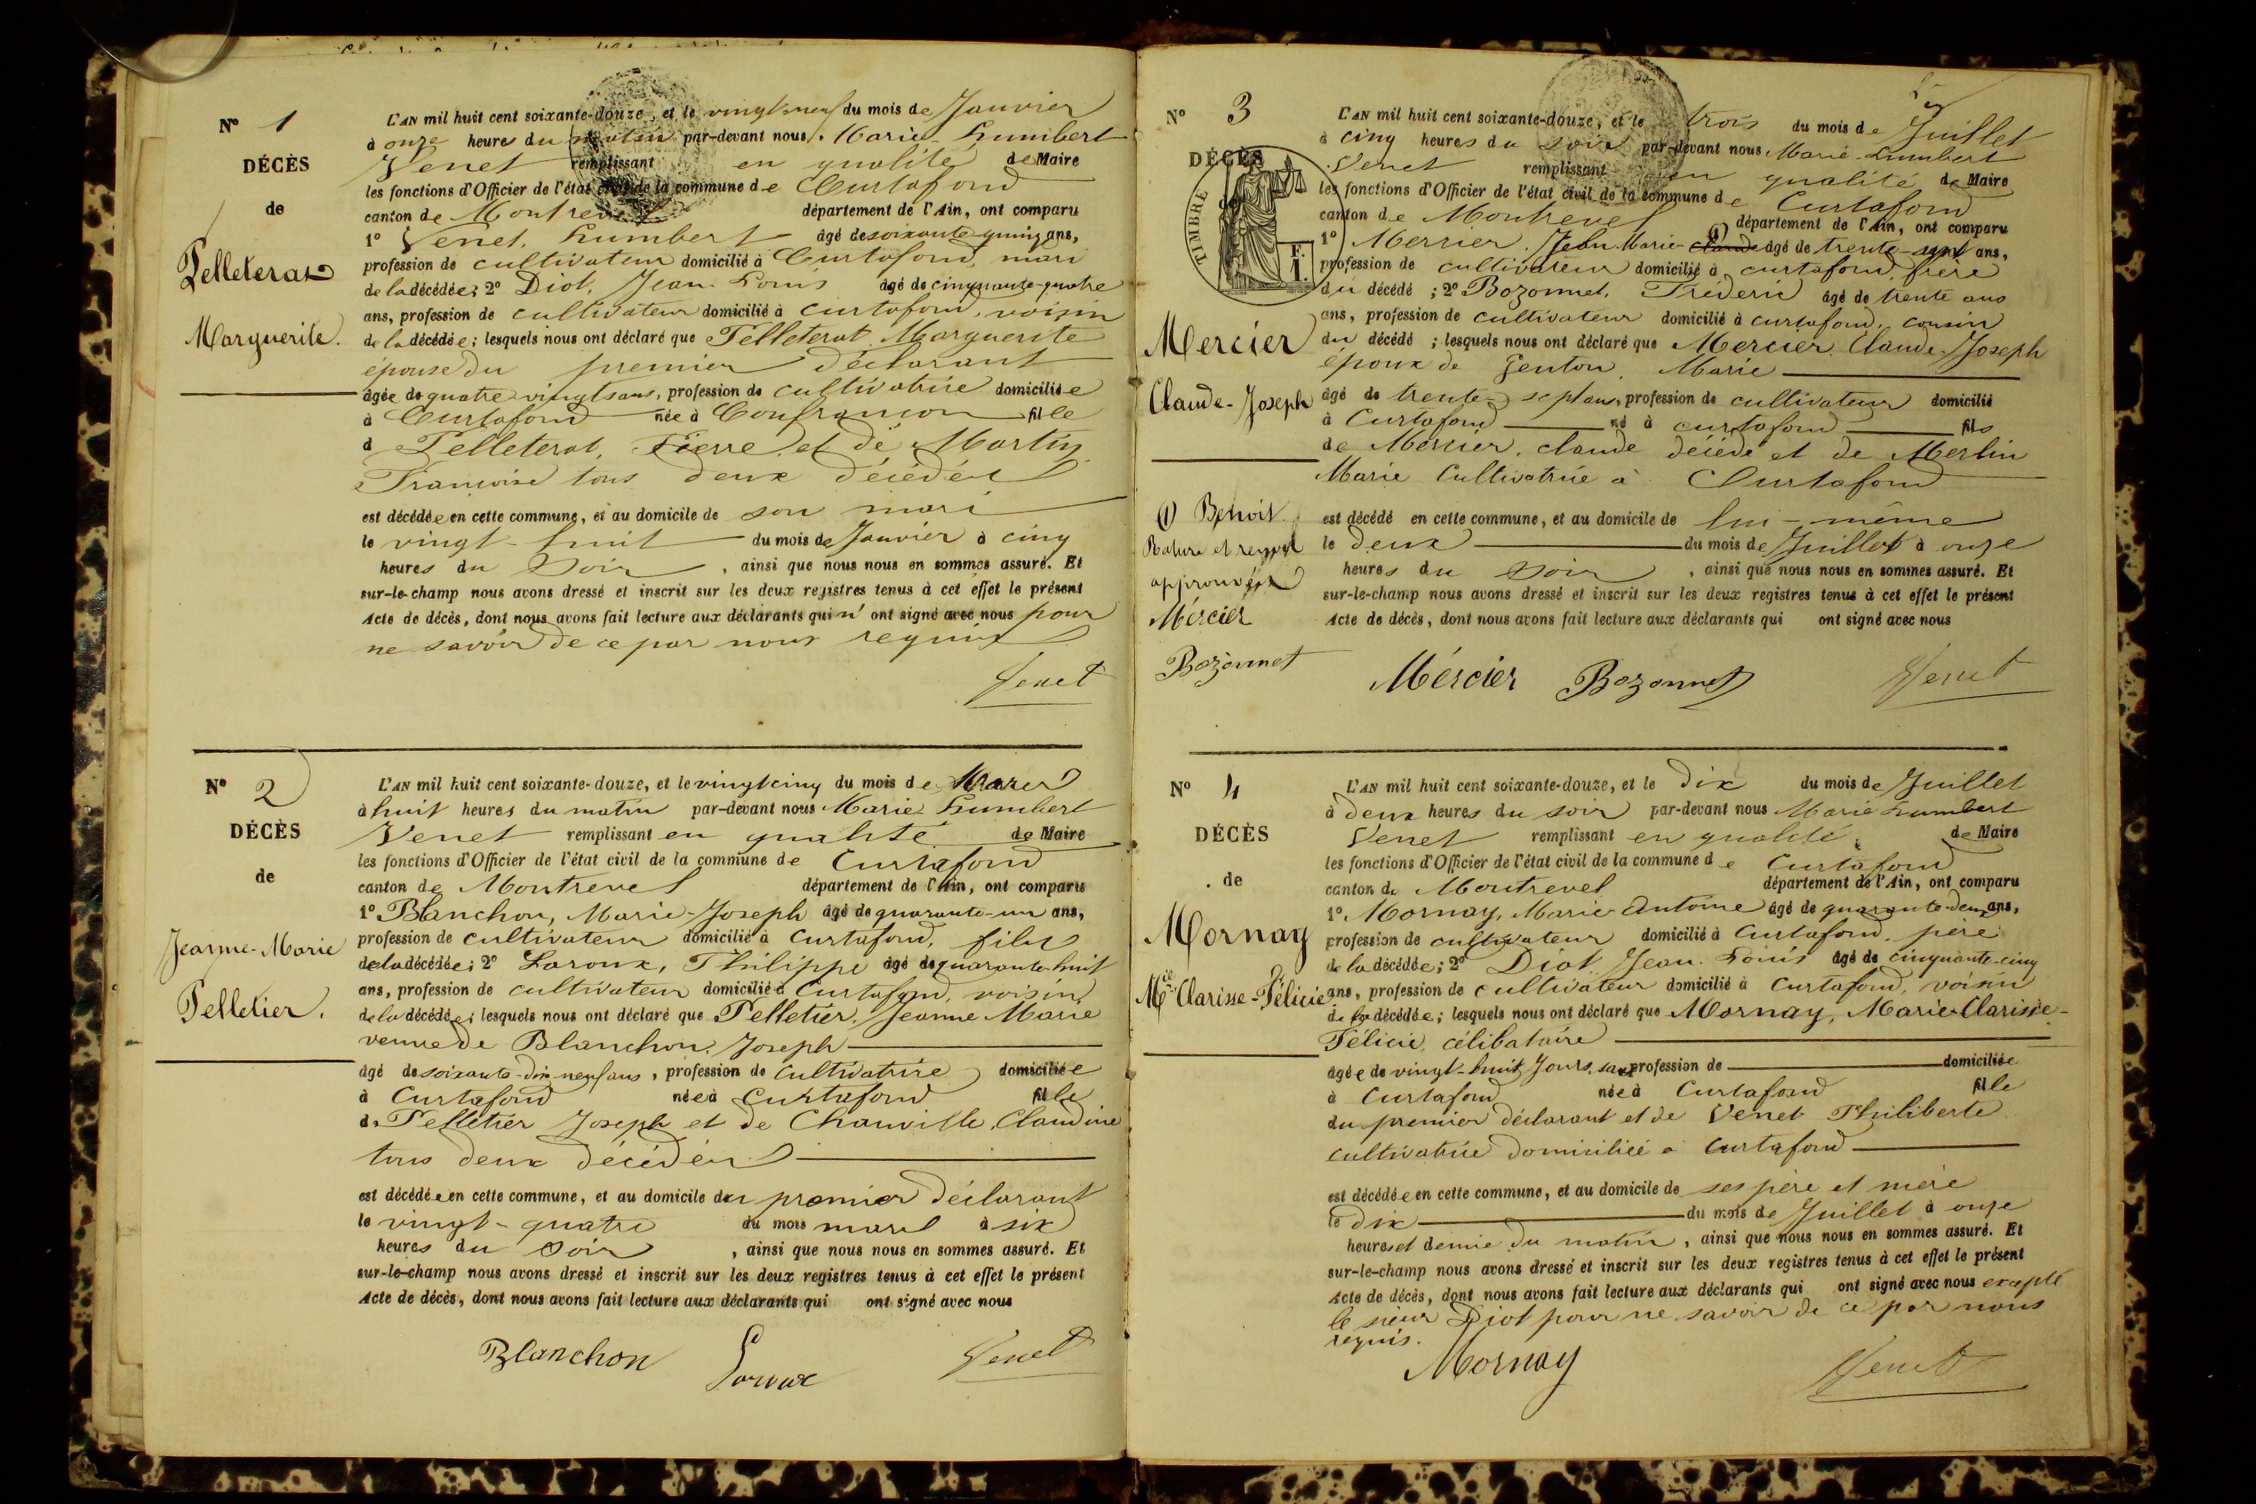 N° 1
DÉCÈS
de
Pelleterat
Marguerite.
L'AN mil huit cent soixante-douze, et le vingt-neuf du mois de Janvier
à onze heures du matin par-devant nous Marie-Humbert
Venet remplissant en qualité de Maire
les fonctions d'Officier de l'état civil de la commune de Curtafond
canton de Montrevel département de l'Ain, ont comparu
1° Venet, Humbert âgé de soixante-quinze ans,
profession de cultivateur domicilié à Curtafond, mari
de la décédée; 2° Diot, Jean-Louis âgé de cinquante-quatre
ans, profession de cultivateur domicilié à Curtafond, voisin
de la décédée; lesquels nous ont déclaré que Pelleterat Marguerite
épouse du premier déclarant
âgée de quatre-vingts ans, profession de cultivatrice domiciliée
à Curtafond née à Confrançon fille
d Pelleterat, Pierre et de Martin
Françoise tous deux décédés
est décédée en cette commune, et au domicile de son mari
le vingt-huit du mois de Janvier à cinq
heures du soir, ainsi que nous nous en sommes assuré. Et
sur-le-champ nous avons dressé et inscrit sur les deux registres tenus à cet effet le présent
Acte de décès, dont nous avons fait lecture aux déclarants qui n'ont signé avec nous pour
ne savoir de ce par nous requis
Venet
N° 2
DÉCÈS
de
Jeanne-Marie
Pelletier.
L'AN mil huit cent soixante-douze, et le vingt cinq du mois de Mars
à huit heures du matin par-devant nous Marie Humbert
Venet remplissant en qualité de Maire
les fonctions d'Officier de l'état civil de la commune de Curtafond
canton de Montrevel département de l'Ain, ont comparu
1° Blanchon, Marie-Joseph âgé de quarante-un ans,
profession de cultivateur domicilié à Curtafond, fils
de la décédée; 2° Laroux, Philippe âgé de quarante-huit
ans, profession de cultivateur domicilié à Curtafond, voisin
de la décédée; lesquels nous ont déclaré que Pelletier, Jeanne Marie
veuve de Blanchon, Joseph
âgé de soixante-dix-neuf ans, profession de cultivatrice domiciliée
à Curtafond née à Curtafond fille
de Pelletier Joseph et de Chanville, Claudine
tous deux décédés
est décédée en cette commune, et au domicile du premier déclarant
le vingt-quatre du mois mars à six
heures du soir, ainsi que nous nous en sommes assuré. Et
sur-le-champ nous avons dressé et inscrit sur les deux registres tenus à cet effet le présent
Acte de décès, dont nous avons fait lecture aux déclarants qui ont signé avec nous
Blanchon Laroux Venet
N° 3
DÉCÈS
de
TIMBRE
F. 1.
Mercier
Claude-Joseph
(1) Benoit
Rature et renvoi
approuvés
Mércier
Bozonnet
L'AN mil huit cent soixante-douze, et le trois du mois de Juillet
à cinq heures du soir par-devant nous Marie-Humbert
Venet remplissant en qualité de Maire
les fonctions d'Officier de l'état civil de la commune de Curtafond
canton de Montrevel département de l'Ain, ont comparu
1° Mercier, Jean-Marie (1) Claude âgé de trente-sept ans,
profession de cultivateur domicilié à curtafond, frère
du décédé; 2° Bozonnet, Fréderic âgé de trente ans
ans, profession de cultivateur domicilié à curtafond, cousin
du décédé; lesquels nous ont déclaré que Mercier, Claude-Joseph
époux de Genton, Marie
âgé de trente-sept ans, profession de cultivateur domicilié
à Curtafond né à curtafond fils
de Mercier, claude décédé et de Merlin
Marie Cultivatrice à Curtafond
est décédé en cette commune, et au domicile de lui-même
le deux du mois de Juillet à onze
heures du soir, ainsi que nous nous en sommes assuré. Et
sur-le-champ nous avons dressé et inscrit sur les deux registres tenus à cet effet le présent
Acte de décès, dont nous avons fait lecture aux déclarants qui ont signé avec nous
Mércier Bozonnet Venet
N° 4
DÉCÈS
de
Mornay
Mie Clarisse-Félicie
L'AN mil huit cent soixante-douze, et le dix du mois de Juillet
à deux heures du soir par-devant nous Marie Humbert
Venet remplissant en qualité de Maire
les fonctions d'Officier de l'état civil de la commune de Curtafond
canton de Montrevel département de l'Ain, ont comparu
1° Mornay, Marie-Antoine âgé de quarante-deux ans,
profession de cultivateur domicilié à Curtafond, père
de la décédée; 2° Diot Jean-Louis âgé de cinquante-cinq
ans, profession de cultivateur domicilié à Curtafond, voisin
de la décédée; lesquels nous ont déclaré que Mornay, Marie-Clarisse-
Félicie, célibataire
âgée de vingt-huit Jours, sans profession de domiciliée
à Curtafond née à Curtafond fille
du premier déclarant et de Venet Philiberte
cultivatrice domiciliée à Curtafond
est décédée en cette commune, et au domicile de ses père et mère
le dix du mois de Juillet à onze
heures et demie du matin, ainsi que nous nous en sommes assuré. Et
sur-le-champ nous avons dressé et inscrit sur les deux registres tenus à cet effet le présent
Acte de décès, dont nous avons fait lecture aux déclarants qui ont signé avec nous excepté
le sieur Diot pour ne savoir de ce par nous
requis.
Mornay Venet